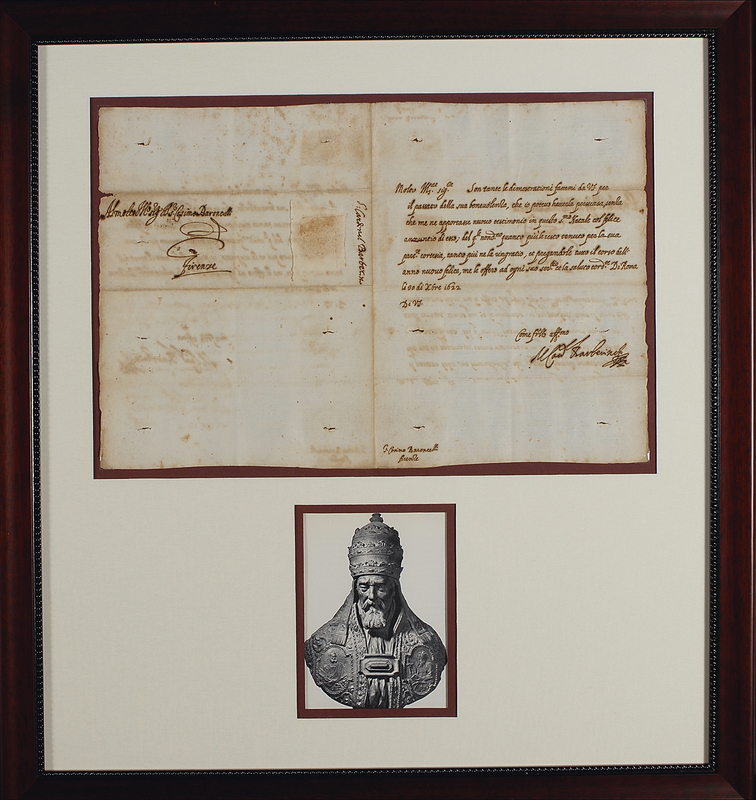 Al molto Mag.co Sig.re Il S.r Cosimo Baroncelli
Firenze
S. Cardinal Barberino
Molto Mag.co Sig.re Son tante le dimostrationi fattemi da VS. per
il passato della sua benevolenza, che io potevo haverla persuasa, senza
che me ne apportasse nuovo testimonio in questo S.mo Natale col felice
annuntio di esso, dal q.le quanto più le resto tenuto per la sua
cortesia, tanto più ne la ringratio, et pregandole tutto il corso dell'
anno nuovo felice, me le offero ad ogni suo et la saluto Di Roma
li 20 di Xbre 1622
Di VS.
Come fr̃ello aff.mo
Il Card. Barberino
S. Cosimo Baroncelli
Firenze